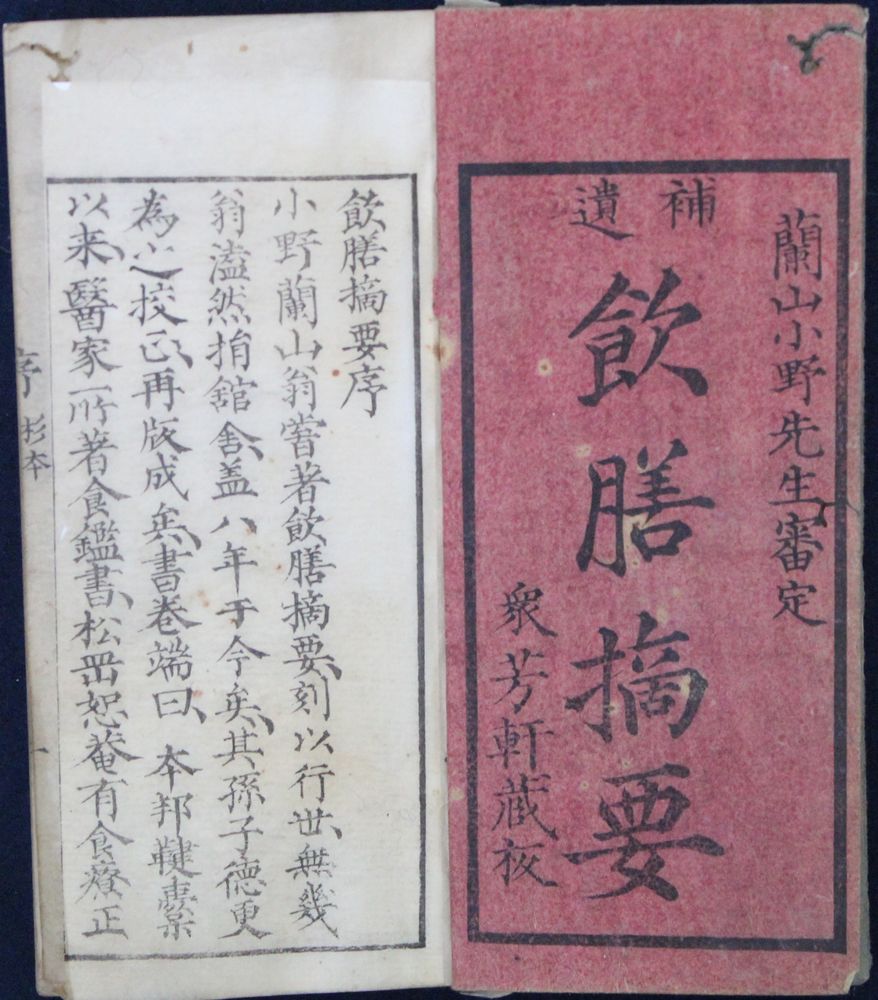 蘭山小野先生審定
補遺
飲膳摘要
衆芳軒蔵板
飲膳摘要序
小野蘭山翁嘗著飲膳摘要、刻以行世、無幾
翁溘然捐舘舍、盖八年于今矣、其孫子德更
為之挍正、再版成矣、書巻端曰、本邦鞬櫜
以来、醫家所著食鑑書、松岡恕菴有食療正
序 彩本 一